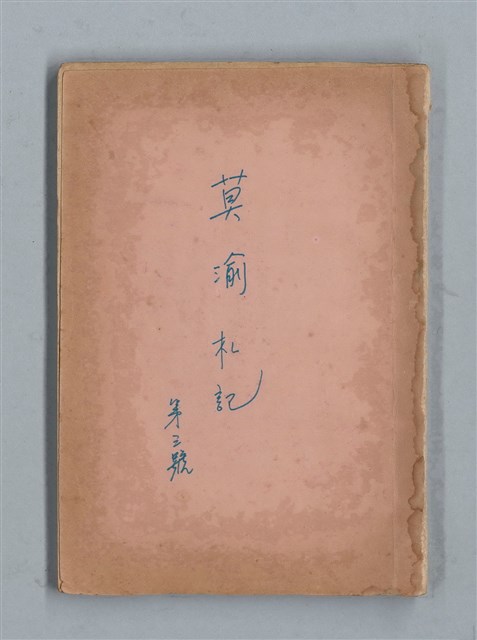 莫渝札記
第三號